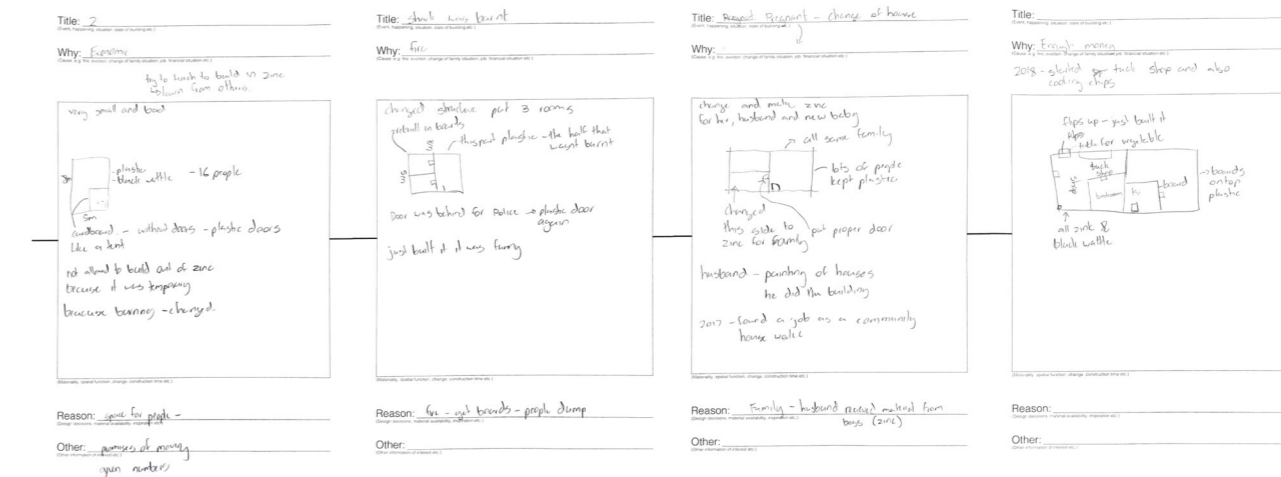 Title: 2
(Event, happening, situation, state of building etc.)
Why:
try to teach to build in zinc
from others.
very small and bad
3m
- plastic
- black wattle
- 16 people
5m
cardboard - without doors - plastic doors
like a tent
not allowed to build out of zinc
because it was temporary
because burning - changed.
(Materiality, spatial function, change, construction time etc.)
Reason: space for people -
(Design decisions, material availability, inspiration etc.)
Other: promises of moving
(Other information of interest etc.)
given numbers
Title: shack was burnt
(Event, happening, situation, state of building etc.)
Why: fire
changed structure put 3 rooms
in boards
this part plastic - the half that
wasnt burnt
Door was behind for Police → plastic door
again
just built it it was funny
(Materiality, spatial function, change, construction time etc.)
Reason: fire - get boards - people dump
(Design decisions, material availability, inspiration etc.)
Other:
(Other information of interest etc.)
Title: Pregnant - change of house
(Event, happening, situation, state of building etc.)
Why:
change and make zinc
for her, husband and new baby
all same family
- lots of people
kept plastic
changed
this side to
zinc for family
put proper door
husband - painting of houses
he did the building
2017 - found a job as a community
house
(Materiality, spatial function, change, construction time etc.)
Reason: Family - husband received material from
(Design decisions, material availability, inspiration etc.)
boss (zinc)
Other:
(Other information of interest etc.)
Title:
(Event, happening, situation, state of building etc.)
Why: Enough money
2018 - started tuck shop and also
cooking chips
flips up - just built it
table for vegetable
tuck
shop
days
bedroom
board
→ boards
ontop
plastic
all zink &
black wattle
(Materiality, spatial function, change, construction time etc.)
Reason:
(Design decisions, material availability, inspiration etc.)
Other:
(Other information of interest etc.)